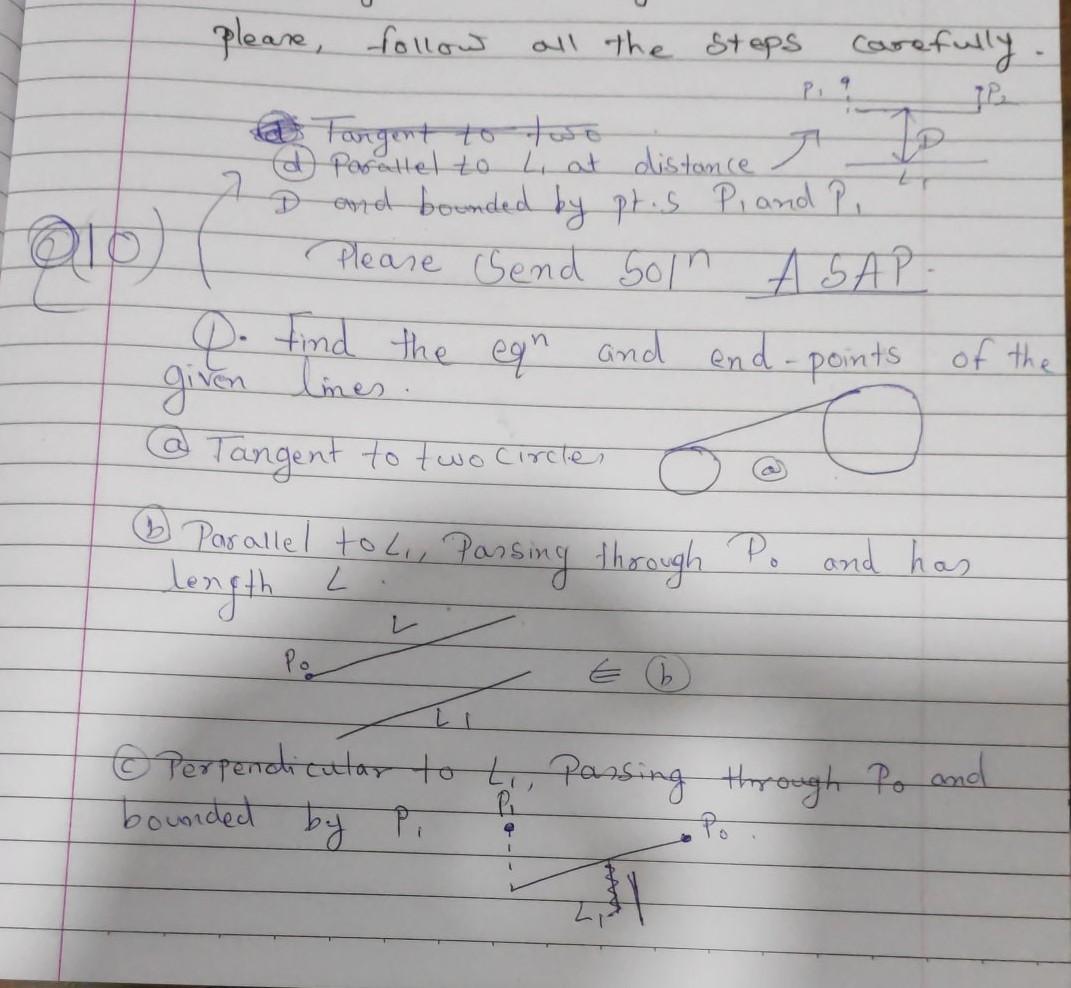 please, follow all the steps carefully.
P1 P2
Tangent to two
(d) Parallel to L1 at distance D
L1
D and bounded by pt.s P1 and P1
Q10)
Please Send Solⁿ ASAP.
Q. find the eqⁿ and end-points of the
given lines.
(a) Tangent to two circles
(a)
(b) Parallel to L1, Passing through P0 and has
length L.
L
P0
(b)
L1
(c) Perpendicular to L1, Passing through P0 and
bounded by P1
P1
P0.
L1